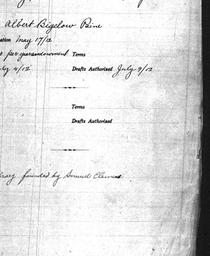 Albert Bigelow Paine
ation May 17/12
Terms
4/12 Drafts Authorized July 9/12
Terms
Drafts Authorized
rary founded by Samuel Clemens